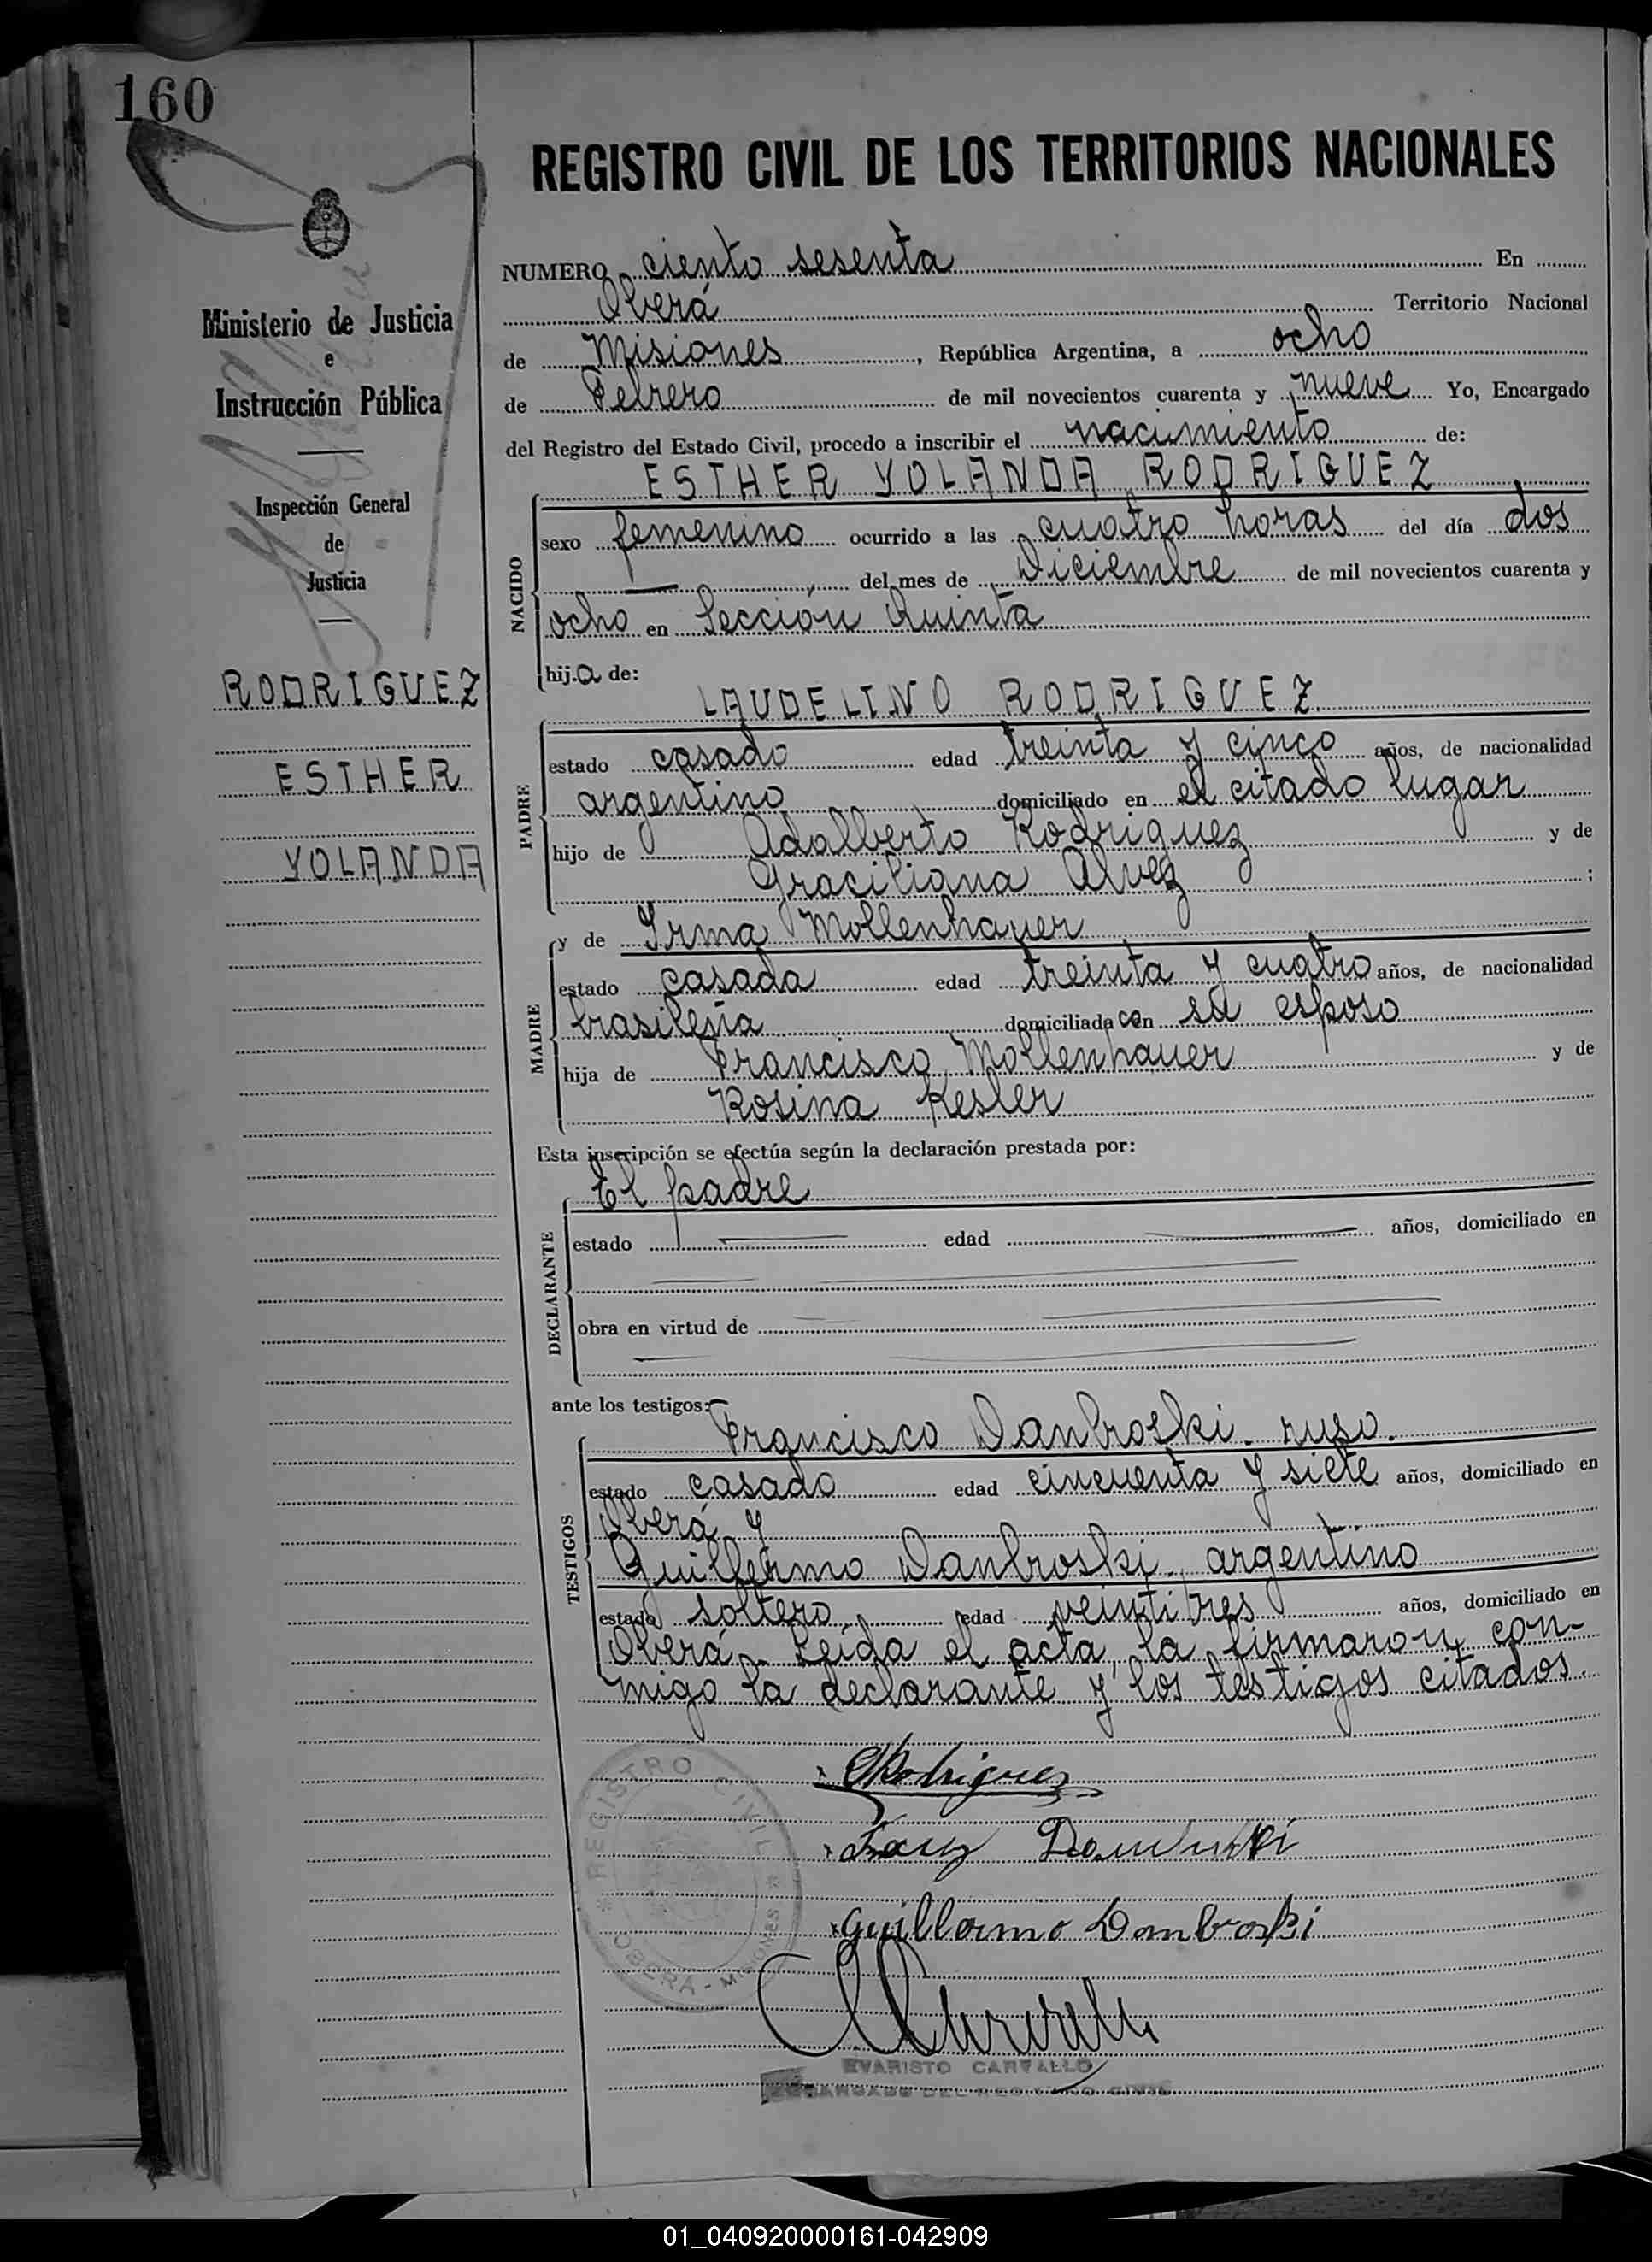 160
REGISTRO CIVIL DE LOS TERRITORIOS NACIONALES
NUMERO ciento sesenta En
Oberá Territorio Nacional
de Misiones, República Argentina, a ocho
de Febrero de mil novecientos cuarenta y nueve Yo, Encargado
del Registro del Estado Civil, procedo a inscribir el nacimiento de:
Ministerio de Justicia
e
Instrucción Pública
Inspección General
de
Justicia
RODRIGUEZ
ESTHER
YOLANDA
NACIDO
ESTHER YOLANDA RODRIGUEZ
sexo femenino ocurrido a las cuatro horas del día dos
— del mes de Diciembre de mil novecientos cuarenta y
ocho en Sección Quinta
hija de:
PADRE
LAUDELINO RODRIGUEZ
estado casado edad treinta y cinco años, de nacionalidad
argentino domiciliado en el citado lugar
hijo de Adalberto Rodriguez y de
Graciliana Alvez ;
MADRE
y de Irma Mollenhauer
estado casada edad treinta y cuatro años, de nacionalidad
brasileña domiciliada con su esposo
hija de Francisco Mollenhauer y de
Rosina Kesler
Esta inscripción se efectúa según la declaración prestada por:
DECLARANTE
El padre
estado — edad — años, domiciliado en
obra en virtud de
ante los testigos:
TESTIGOS
Francisco Danbroski. ruso.
estado casado edad cincuenta y siete años, domiciliado en
Oberá y
Guillermo Danbroski. argentino
estado soltero edad veintitres años, domiciliado en
Oberá. Leída el acta, la firmaron con-
migo la declarante y los testigos citados.
Rodriguez
Guillermo Dombroski
REGISTRO CIVIL
OBERÁ - MISIONES
EVARISTO CARVALLO
ENCARGADO DEL REGISTRO CIVIL
01_040920000161-042909